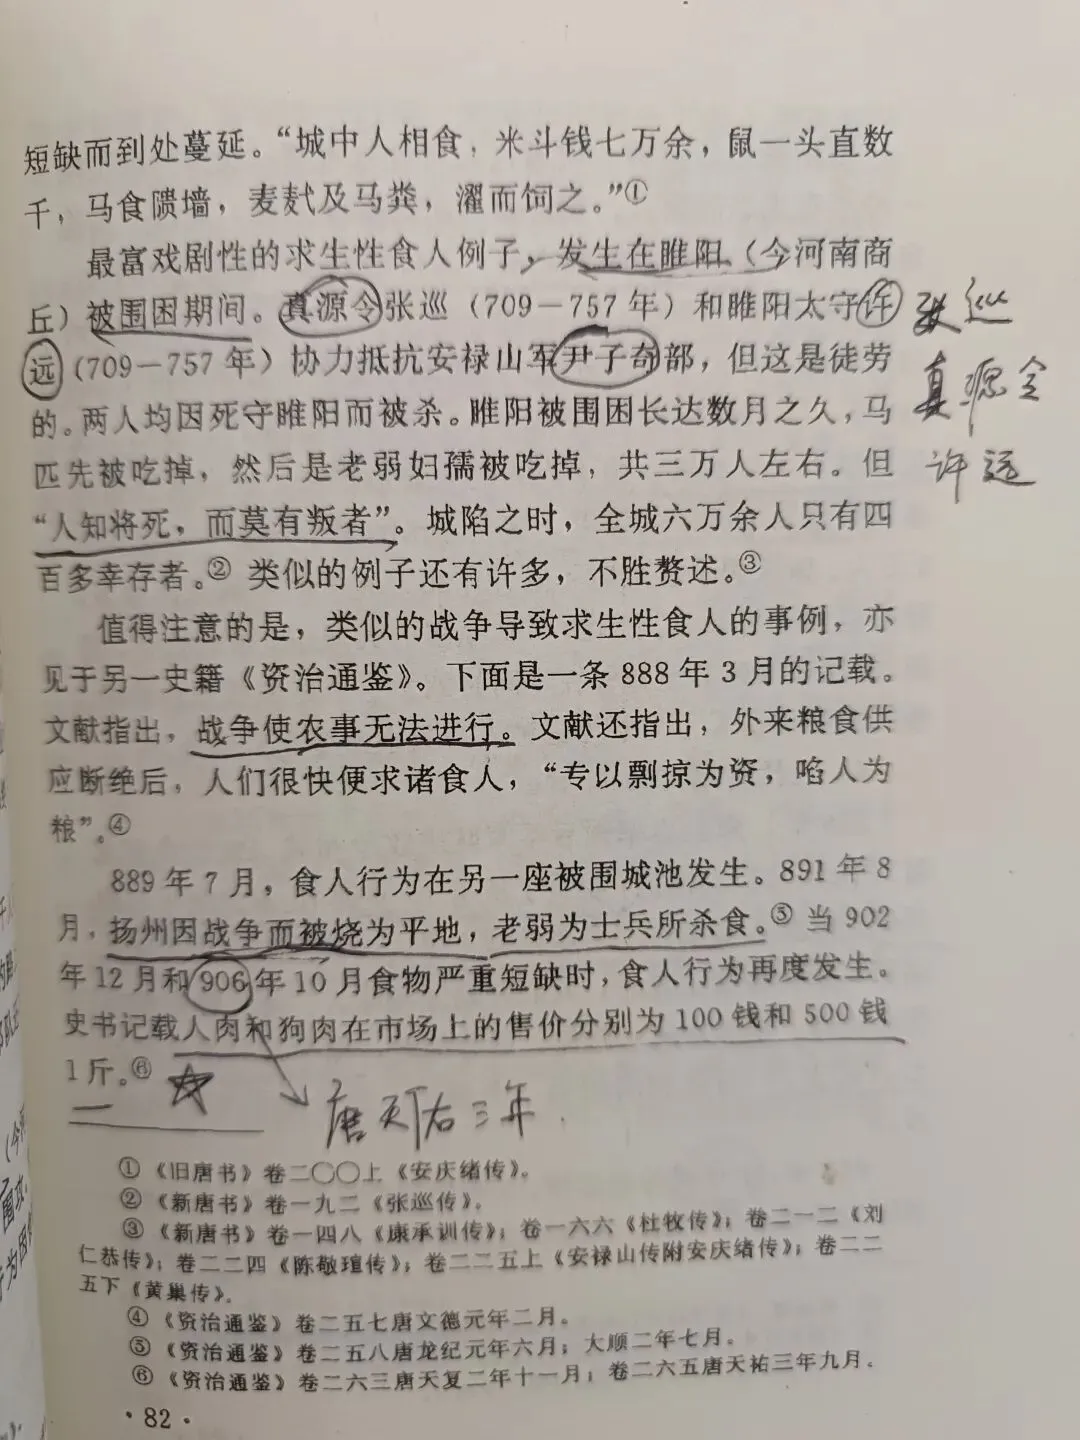 短缺而到处蔓延。“城中人相食，米斗钱七万余，鼠一头直数
千，马食隤墙，麦𪌭及马粪，濯而饲之。”①
最富戏剧性的求生性食人例子，发生在睢阳（今河南商
丘）被围困期间。真源令张巡（709－757年）和睢阳太守许
远（709－757年）协力抵抗安禄山军尹子奇部，但这是徒劳
的。两人均因死守睢阳而被杀。睢阳被围困长达数月之久，马
匹先被吃掉，然后是老弱妇孺被吃掉，共三万人左右。但
“人知将死，而莫有叛者”。城陷之时，全城六万余人只有四
百多幸存者。② 类似的例子还有许多，不胜赘述。③
值得注意的是，类似的战争导致求生性食人的事例，亦
见于另一史籍《资治通鉴》。下面是一条888年3月的记载。
文献指出，战争使农事无法进行。文献还指出，外来粮食供
应断绝后，人们很快便求诸食人，“专以剽掠为资，啗人为
粮”。④
889年7月，食人行为在另一座被围城池发生。891年8
月，扬州因战争而被烧为平地，老弱为士兵所杀食。⑤ 当902
年12月和906年10月食物严重短缺时，食人行为再度发生。
史书记载人肉和狗肉在市场上的售价分别为100钱和500钱
1斤。⑥
唐天佑三年.
张巡
真源令
许远
① 《旧唐书》卷二〇〇上《安庆绪传》。
② 《新唐书》卷一九二《张巡传》。
③ 《新唐书》卷一四八《康承训传》；卷一六六《杜牧传》；卷二一二《刘
仁恭传》；卷二二四《陈敬瑄传》；卷二二五上《安禄山传附安庆绪传》；卷二二
五下《黄巢传》。
④ 《资治通鉴》卷二五七唐文德元年二月。
⑤ 《资治通鉴》卷二五八唐龙纪元年六月；大顺二年七月。
⑥ 《资治通鉴》卷二六三唐天复二年十一月；卷二六五唐天祐三年九月。
·82·